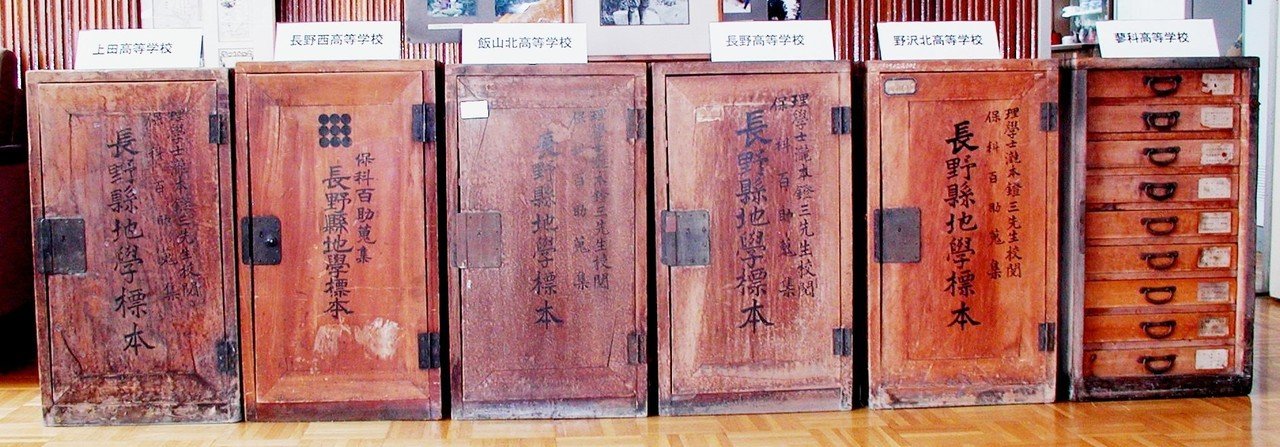 上田高等学校
理學士瀧本鐙三先生校閲
保科百助蒐集
長野縣地學標本
長野西高等学校
保科百助蒐集
長野縣地學標本
飯山北高等学校
理學士瀧本鐙三先生校閲
保科百助蒐集
長野縣地學標本
長野高等学校
理學士瀧本鐙三先生校閲
保科百助蒐集
長野縣地學標本
野沢北高等学校
理學士瀧本鐙三先生校閲
保科百助蒐集
長野縣地學標本
蓼科高等学校